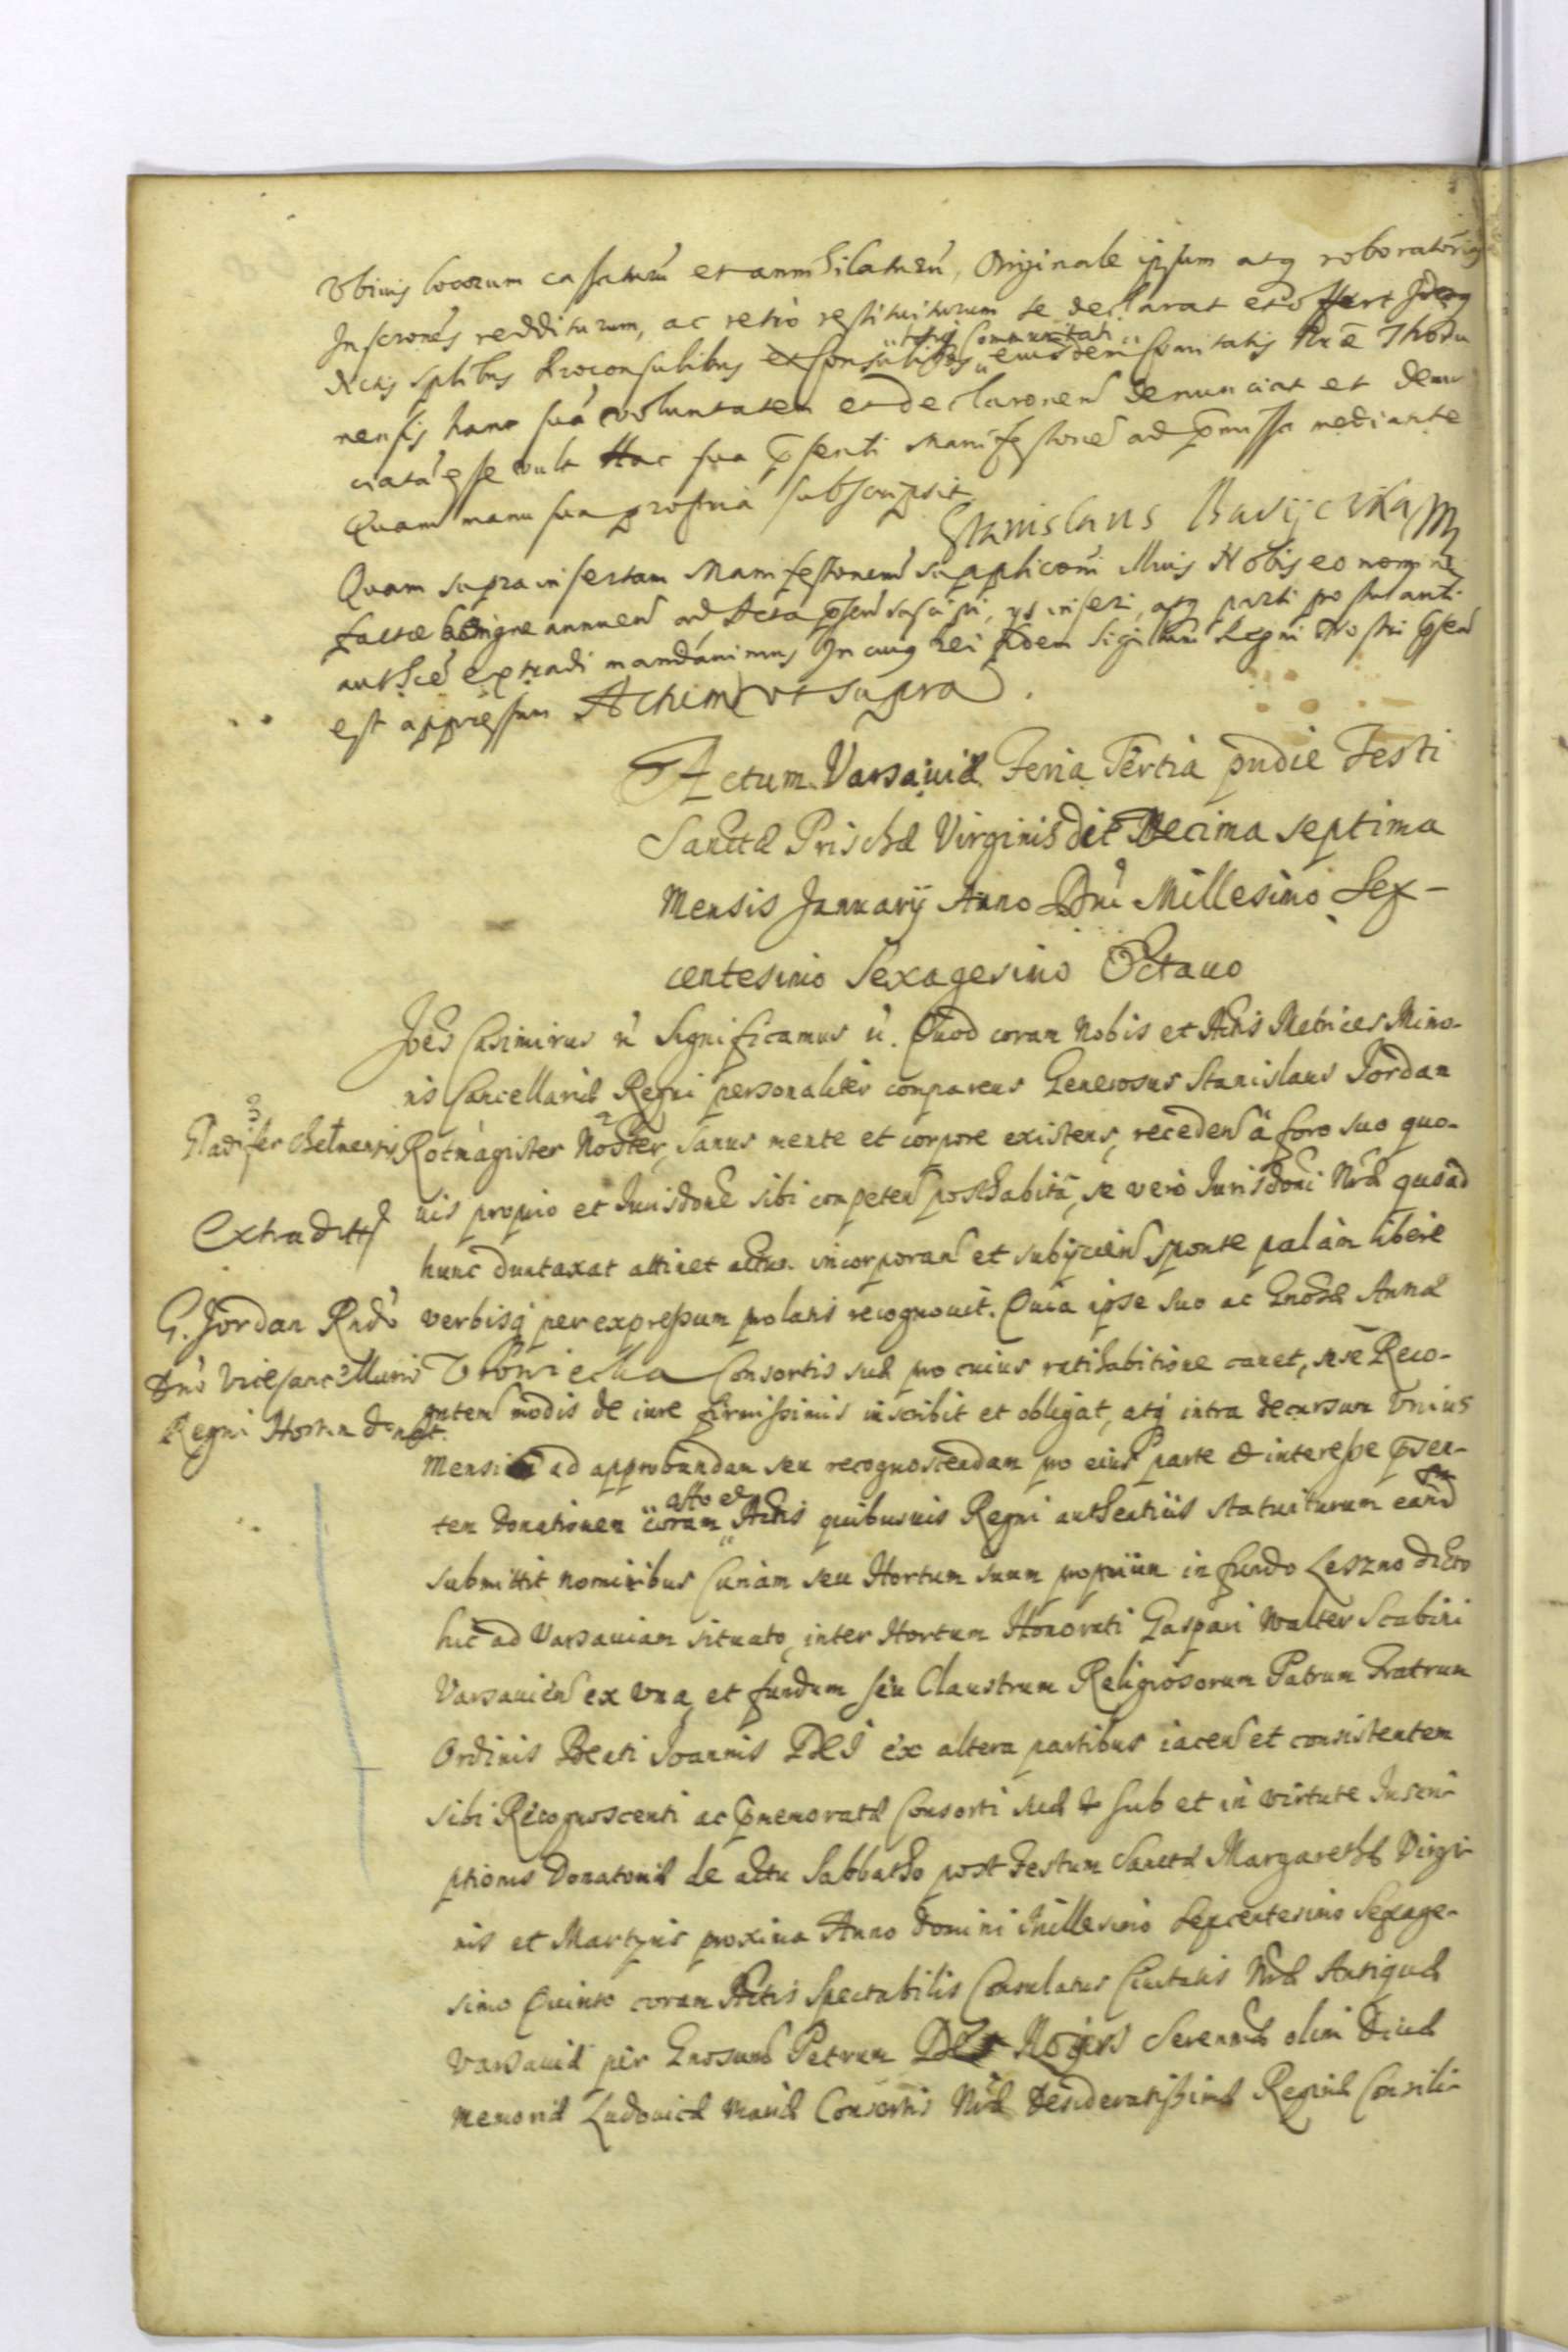 Vbivis locorum cassaturum et annihilaturum, Originale ipsum atq roboratorias
Inscrones redditurum, ac retro restituturum se declarat et offert Ideoq
dictis Spblibus Proconsulibus et Consulibus totiq Communitati eiusdem Civitatis
nensis hanc suã voluntatem et declaronem denunciat et denun
ciatã esse vult Hac sua pñsenti Manifestone ad pmissa mediante
Quam manu sua propria subscripsit
Stanislaus
Quam supra insertam Manifestonem supplicaoni Nobis eo nomine
factæ benigne annuen ad Acta suscipi, et inseri, atq parti postulanti
authen extradi mandavimus In cuius Rei fidem Sigillum Regni Nostri
est appressum Actum ut supra.
Actum Varsaviæ Feria Tertia pridie Festi
Sanctæ Priscæ Virginis die Decima septima
Mensis Januarij Anno Dni Millesimo Sex-
centesimo Sexagesimo Octavo
Joēs Casimirus Significamus Quod coram Nobis et Actis Metrices Mino-
ris Cancellariæ Regni personaliter comparens Generosus Stanislaus Jordan
Gladifer Rotmagister Noster, sanus mente et corpore existens, receden à foro suo quo-
vis proprio et Jurisdone sibi competen posthabitã, se vero Jurisdoni Nræ quoad
Extradit
hunc duntaxat attinet actum incorporan et subijcien sponte palàm libere
G. Jordan Rndo verbisq per expressum prolatis recognovit. Quia ipse suo ac Gnosæ Annæ
Dno Vicecancellario Consortis suæ pro cuius ratihabitione cavet, sese Reco-
Regni Hortum donat.
gnten modis de iure firmissimis inscribit et obligat, atq intra decursum Vnius
Mensis ad approbandam seu recognoscendam pro eius parte et interesse pñsen-
tem donationem coram Actis quibusvis Regni authenticis statuiturum
submittit nominibus Curiam seu Hortum suum proprium in fundo Leszno dicto
hic ad Varsaviam situato, inter Hortum Honorati Gaspari Walter Scabini
Varsavien ex una, et fundum seu Claustrum Religiosorum Patrum Fratrum
Ordinis Beati Joannis DEI ex altera partibus iacen et consistentem
sibi Recognoscenti ac pmemoratæ Consorti suæ sub et in virtute Inscri-
ptionis Donatoriæ de actu Sabbatho post Festum Sanctæ Margarethæ Virgi-
nis et Martyris proxima Anno Domini Millesimo Sexcentesimo Sexage-
simo Quinto coram Actis Spectabilis Consulatus Civitatis Nræ Antiquæ
Varsaviæ per Gnosum Petrum Des Noyers Serenmæ olim Divæ
memoriæ Ludovicæ Mariæ Consortis Nræ Desideratissimæ Reginæ Consili-